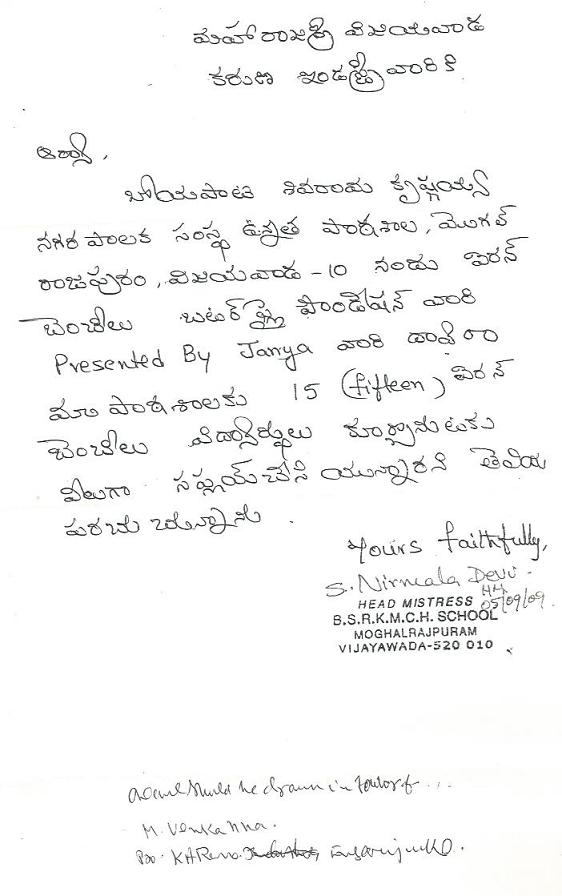 మహారాజశ్రీ విజయవాడ
కరుణ ఇండస్ట్రీ వారికి
ఆర్యా,
బోయపాటి శివరామ కృష్ణయ్య
నగర పాలక సంస్థ ఉన్నత పాఠశాల, మొగల్
రాజపురం, విజయవాడ - 10 నందు ఐరన్
బెంచీలు బటర్ ఫ్లై ఫౌండేషన్ వారి
Presented By Tanya వారి ద్వారా
మా పాఠశాలకు 15 (fifteen) ఐరన్
బెంచీలు విద్యార్థులు కూర్చొనుటకు
వీలుగా సప్లయ్ చేసి యున్నారని తెలియ
పరచు చున్నాను.
Yours faithfully,
S. Nirmala Devi
HM
05/09/09.
HEAD MISTRESS
B.S.R.K.M.C.H. SCHOOL
MOGHALRAJPURAM
VIJAYAWADA-520 010
should be drawn in favour of ...
M. Venkanna.